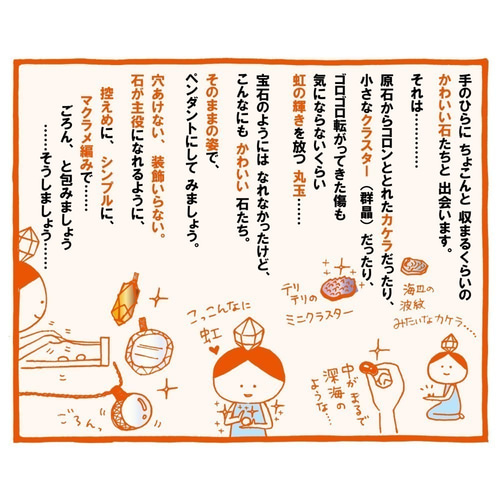 手のひらに ちょこんと 収まるくらいの
かわいい石たちと 出会います。
それは………
原石からコロンととれたカケラだったり、
小さなクラスター（群晶）だったり、
ゴロゴロ転がってきた傷も
気にならないくらい
虹の輝きを放つ 丸玉……
宝石のようには なれなかったけど、
こんなにも かわいい 石たち。
そのままの姿で、
ペンダントにして みましょう。
穴あけない、装飾いらない。
石が主役になれるように、
控えめに、シンプルに、
マクラメ編みで……
ごろん、と包みましょう
……そうしましょう……
海皿の
波紋
みたいなカケラ…
テリ
テリの
ミニクラスター
中がまるで
深海の
ような…
こっこんなに
虹
ごろんっ